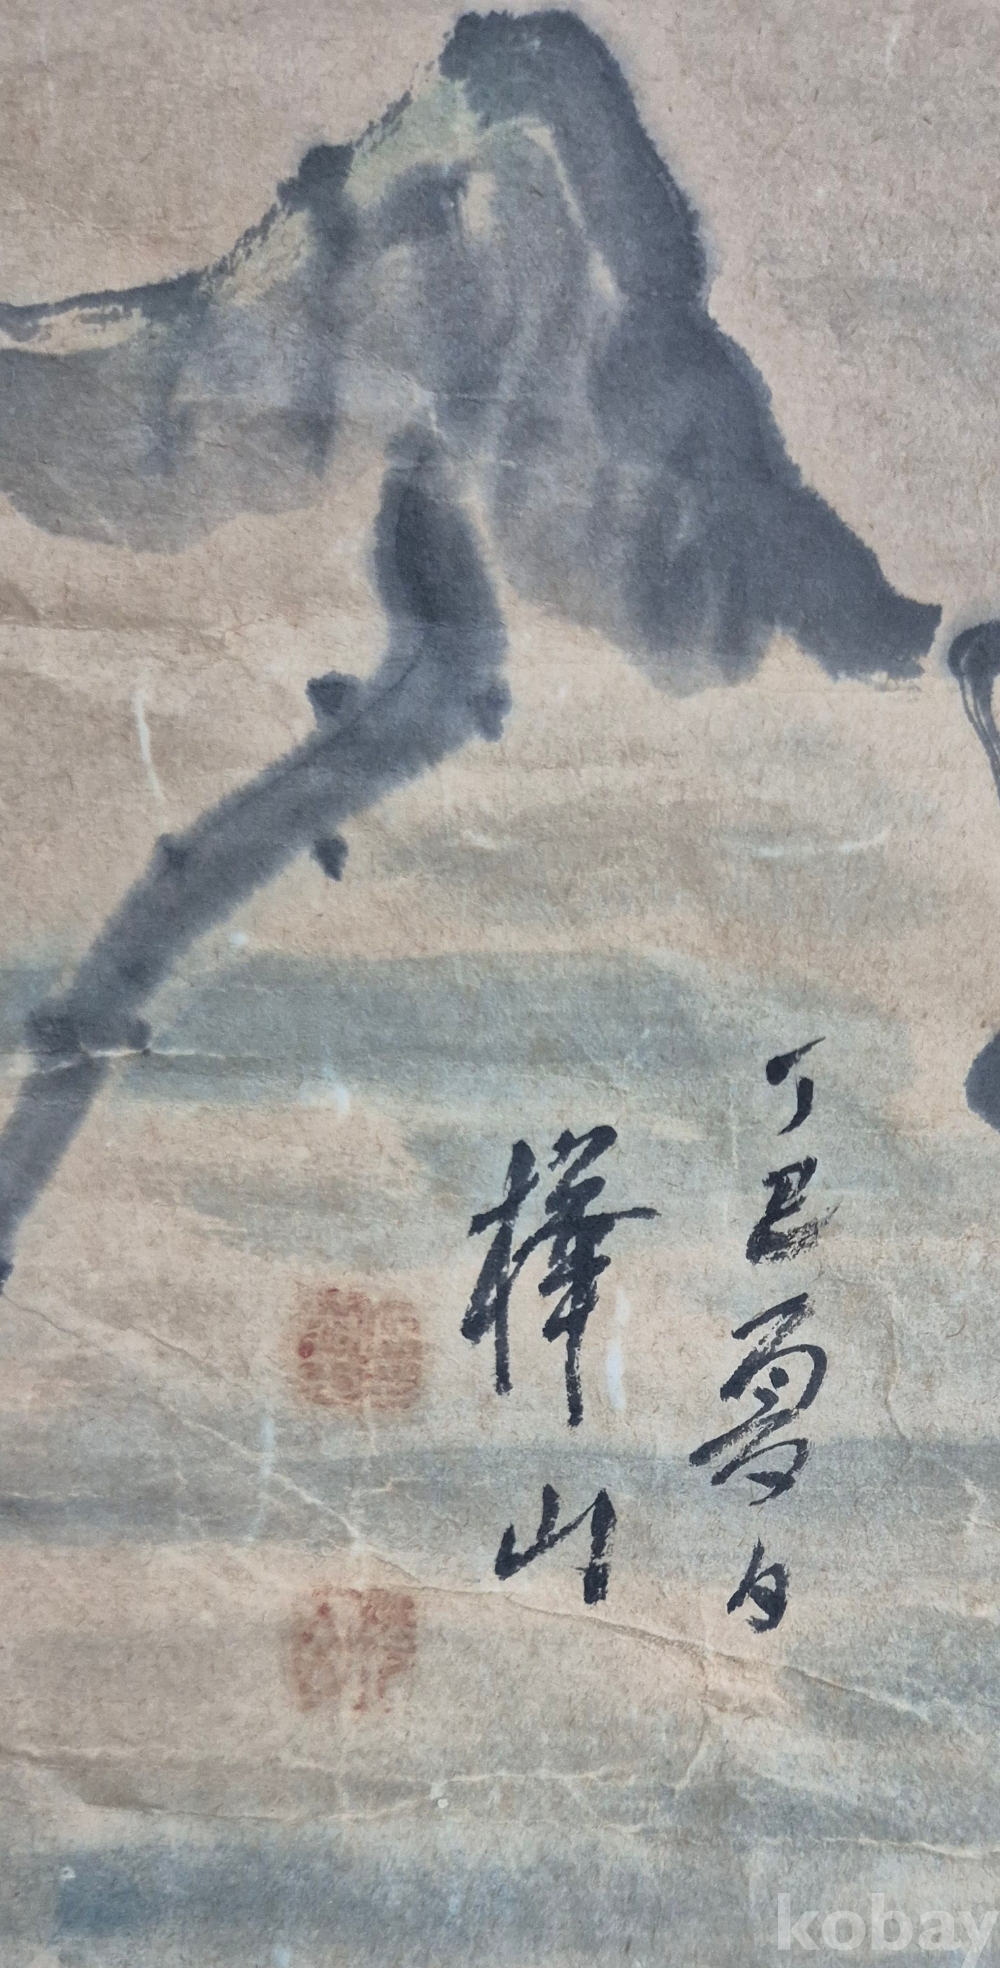 丁巳夏日
樺山
kobay